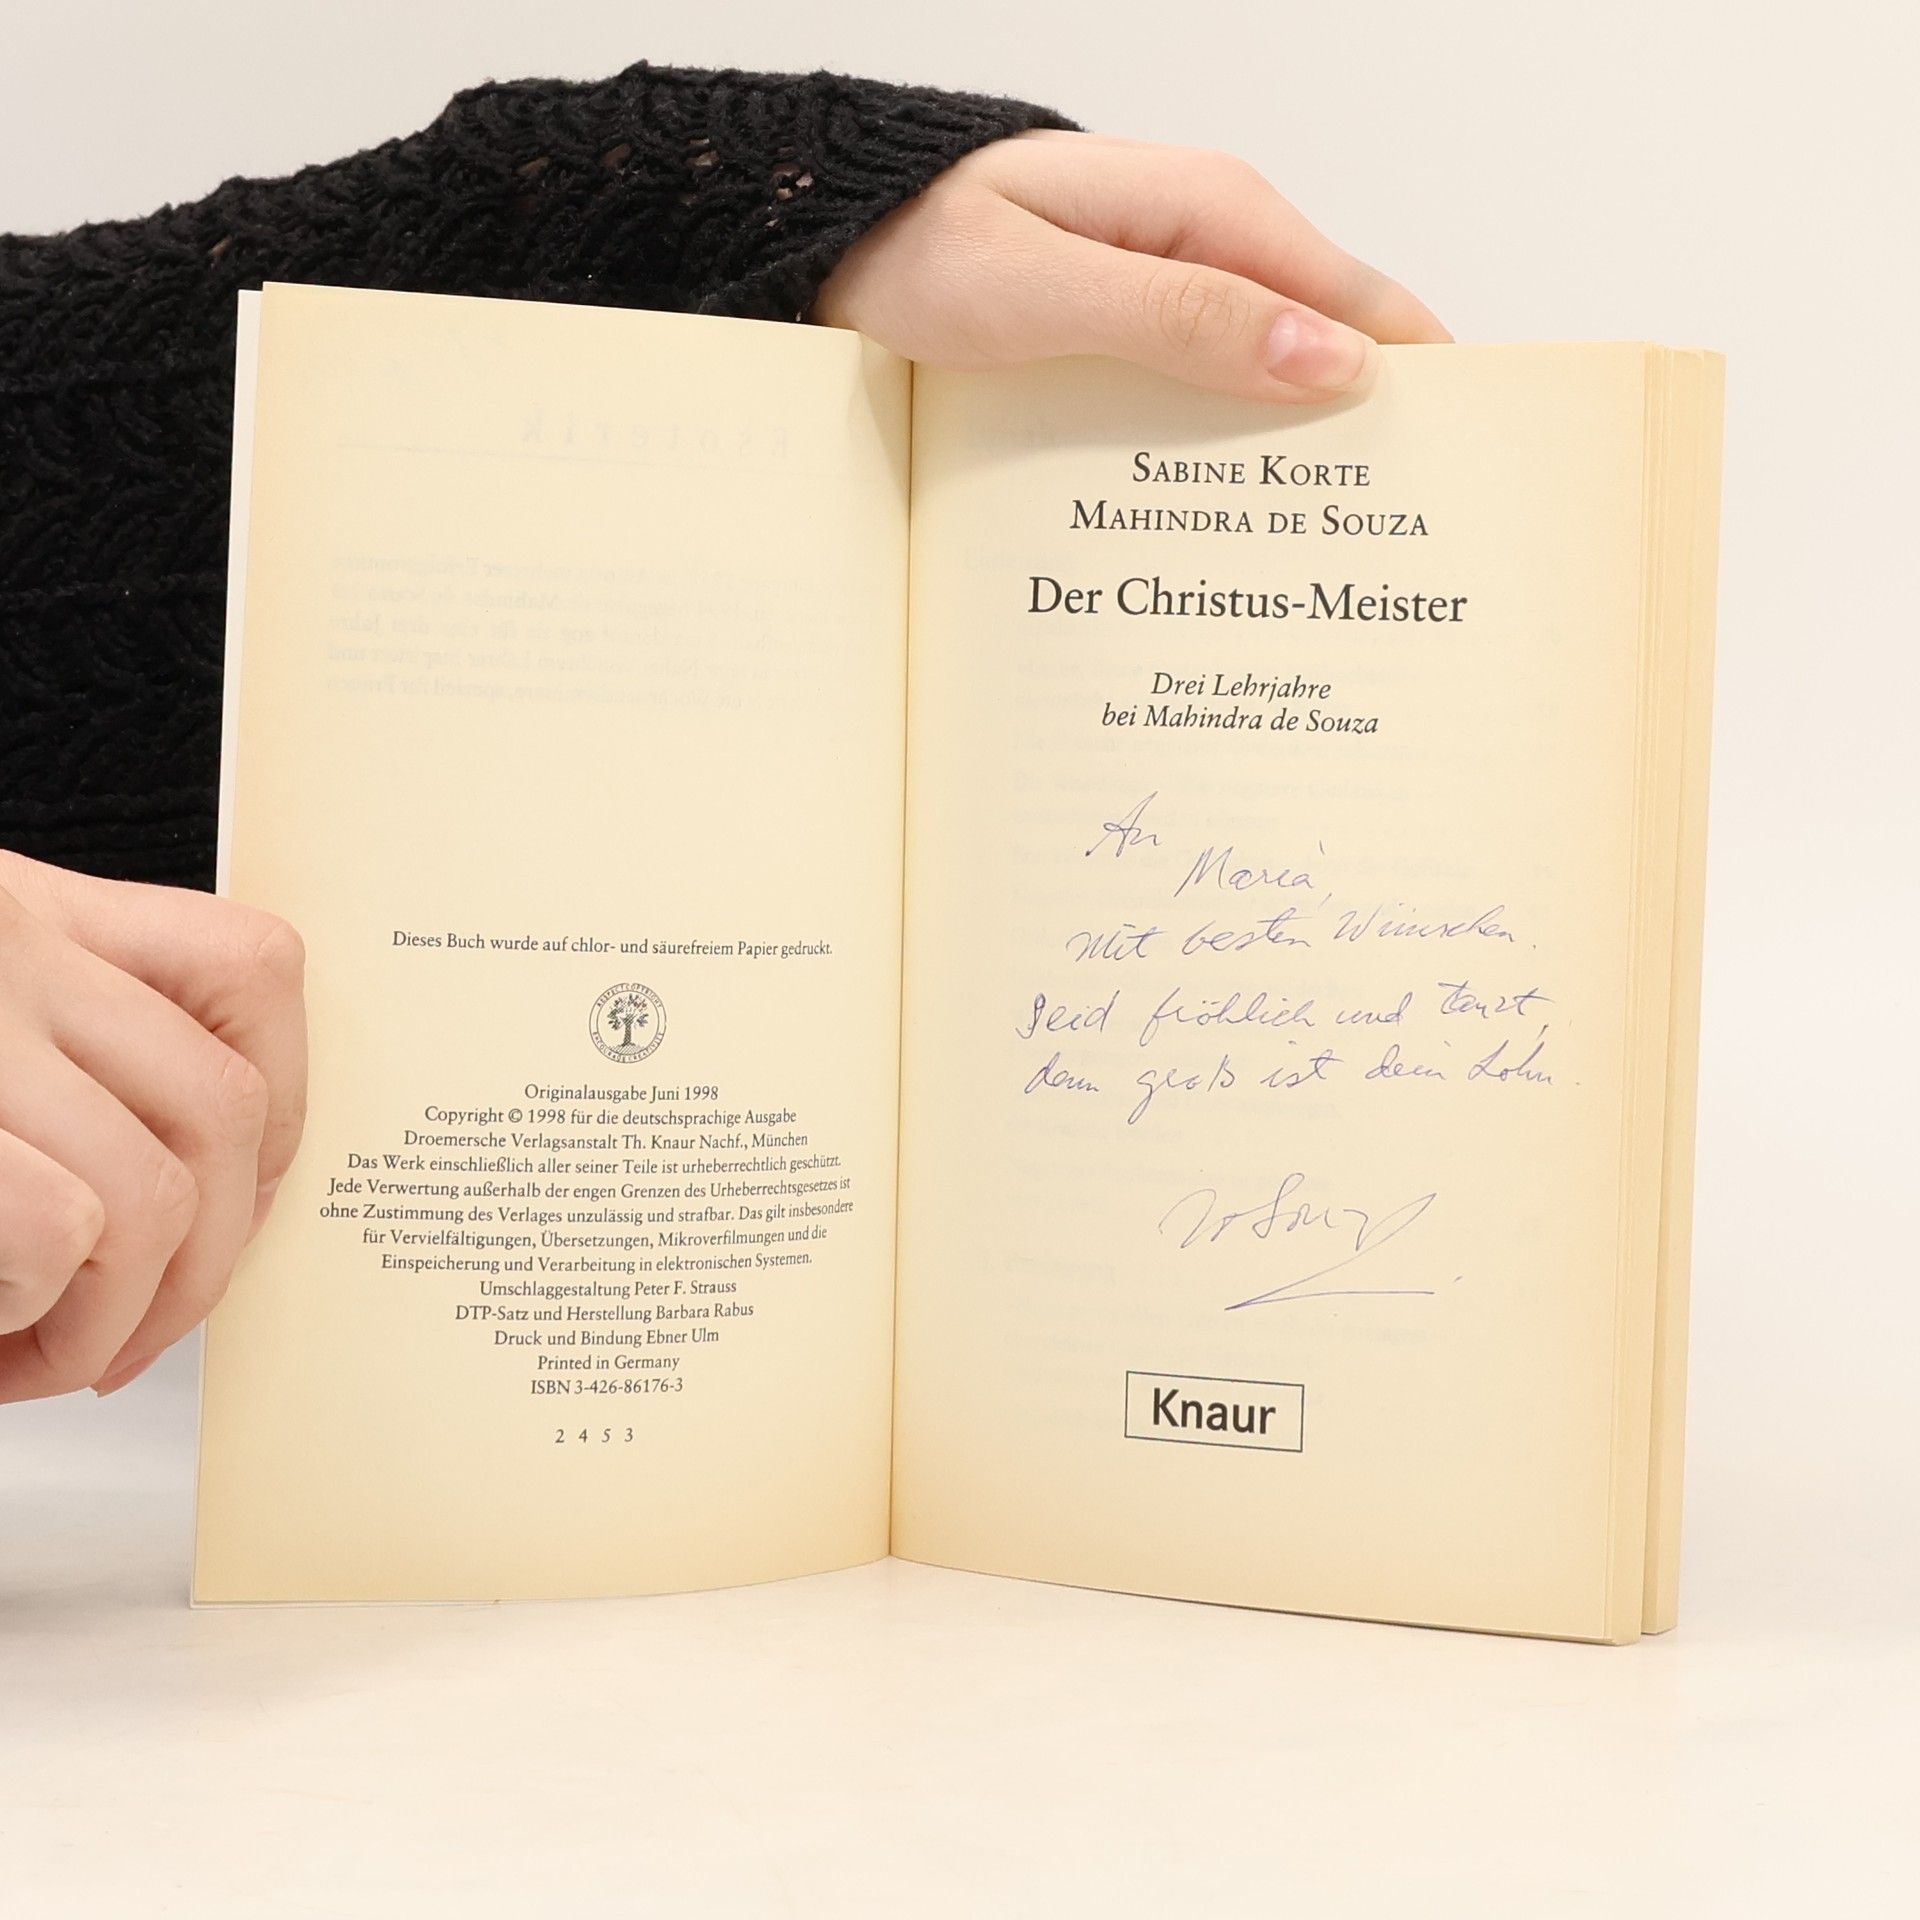 Dieses Buch wurde auf chlor- und säurefreiem Papier gedruckt.
RESPECT COPYRIGHT
ENCOURAGE CREATIVITY
Originalausgabe Juni 1998
Copyright © 1998 für die deutschsprachige Ausgabe
Droemersche Verlagsanstalt Th. Knaur Nachf., München
Das Werk einschließlich aller seiner Teile ist urheberrechtlich geschützt.
Jede Verwertung außerhalb der engen Grenzen des Urheberrechtsgesetzes ist
ohne Zustimmung des Verlages unzulässig und strafbar. Das gilt insbesondere
für Vervielfältigungen, Übersetzungen, Mikroverfilmungen und die
Einspeicherung und Verarbeitung in elektronischen Systemen.
Umschlaggestaltung Peter F. Strauss
DTP-Satz und Herstellung Barbara Rabus
Druck und Bindung Ebner Ulm
Printed in Germany
ISBN 3-426-86176-3
2 4 5 3
SABINE KORTE
MAHINDRA DE SOUZA
Der Christus-Meister
Drei Lehrjahre
bei Mahindra de Souza
An
Maria,
mit besten Wünschen.
Seid fröhlich und tanzt,
denn groß ist dein Lohn.
Knaur